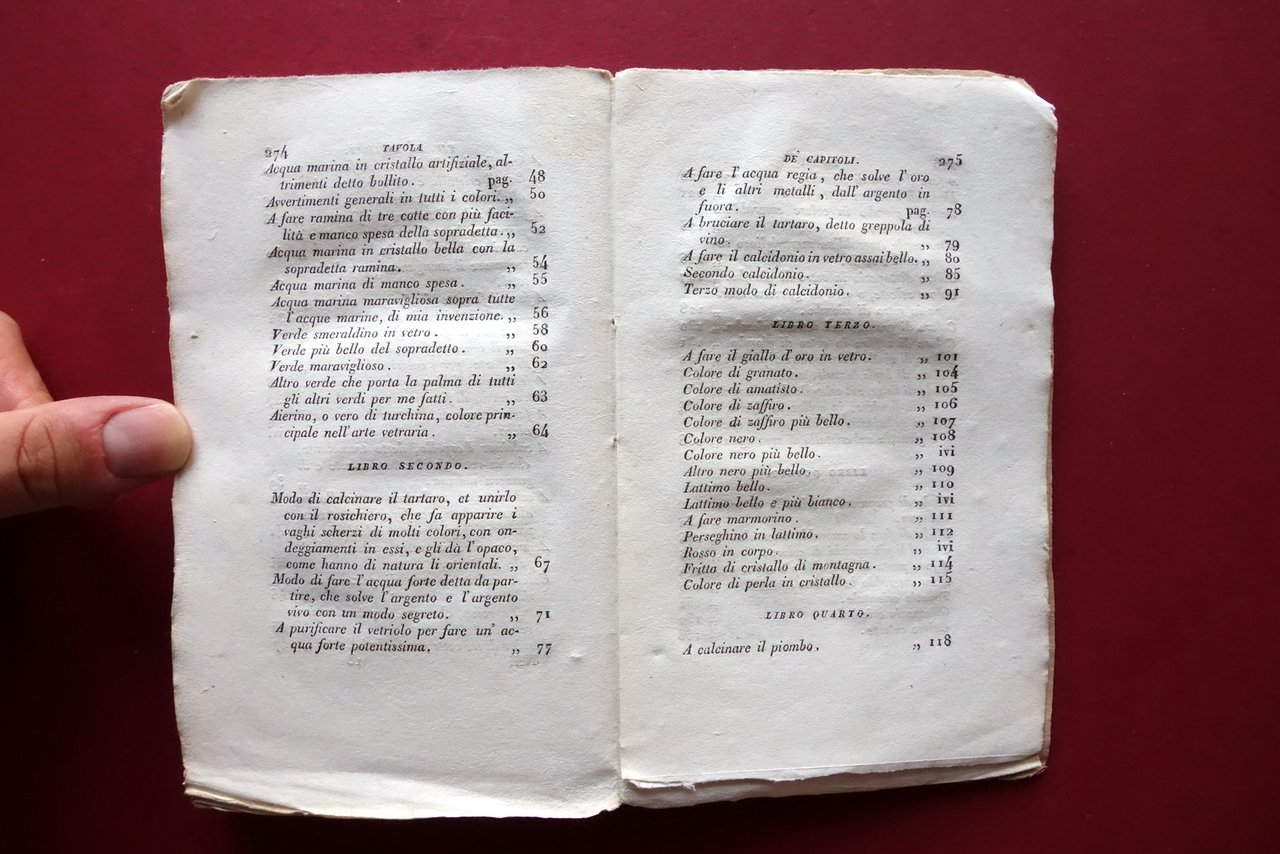 274 TAVOLA
Acqua marina in cristallo artifiziale, al-
trimenti detto bollito. pag. 48
Avvertimenti generali in tutti i colori. ,, 50
A fare ramina di tre cotte con più faci-
lità e manco spesa della sopradetta. ,, 52
Acqua marina in cristallo bella con la
sopradetta ramina. ,, 54
Acqua marina di manco spesa. ,, 55
Acqua marina maravigliosa sopra tutte
l'acque marine, di mia invenzione. ,, 56
Verde smeraldino in vetro. ,, 58
Verde più bello del sopradetto. ,, 60
Verde maraviglioso. ,, 62
Altro verde che porta la palma di tutti
gli altri verdi per me fatti. ,, 63
Aierino, o vero di turchina, colore prin-
cipale nell'arte vetraria. ,, 64
LIBRO SECONDO.
Modo di calcinare il tartaro, et unirlo
con il rosichiero, che fa apparire i
vaghi scherzi di molti colori, con on-
deggiamenti in essi, e gli dà l'opaco,
come hanno di natura li orientali. ,, 67
Modo di fare l'acqua forte detta da par-
tire, che solve l'argento e l'argento
vivo con un modo segreto. ,, 71
A purificare il vetriolo per fare un' ac-
qua forte potentissima. ,, 77
DE' CAPITOLI. 275
A fare l'acqua regia, che solve l'oro
e li altri metalli, dall'argento in
fuora. pag. 78
A bruciare il tartaro, detto greppola di
vino. ,, 79
A fare il calcidonio in vetro assai bello. ,, 80
Secondo calcidonio. ,, 85
Terzo modo di calcidonio. ,, 91
LIBRO TERZO.
A fare il giallo d'oro in vetro. ,, 101
Colore di granato. ,, 104
Colore di amatisto. ,, 105
Colore di zaffiro. ,, 106
Colore di zaffiro più bello. ,, 107
Colore nero. ,, 108
Colore nero più bello. ,, ivi
Altro nero più bello. ,, 109
Lattimo bello. ,, 110
Lattimo bello e più bianco. ,, ivi
A fare marmorino. ,, 111
Perseghino in lattimo. ,, 112
Rosso in corpo. ,, ivi
Fritta di cristallo di montagna. ,, 114
Colore di perla in cristallo. ,, 115
LIBRO QUARTO.
A calcinare il piombo. ,, 118